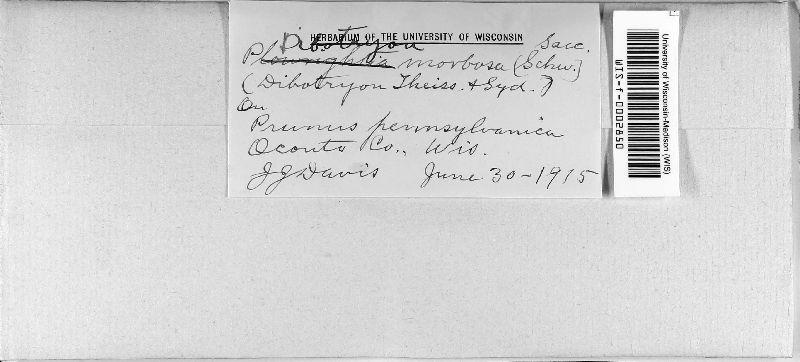 HERBARIUM OF THE UNIVERSITY OF WISCONSIN
Dibotryon
Plowrightia morbosa (Schw.) Sacc.
(Dibotryon Theiss. & Syd.?)
On
Prunus pennsylvanica
Oconto Co., Wis.
JJ Davis June 30-1915
University of Wisconsin-Madison (WIS)
WIS-f-0002850